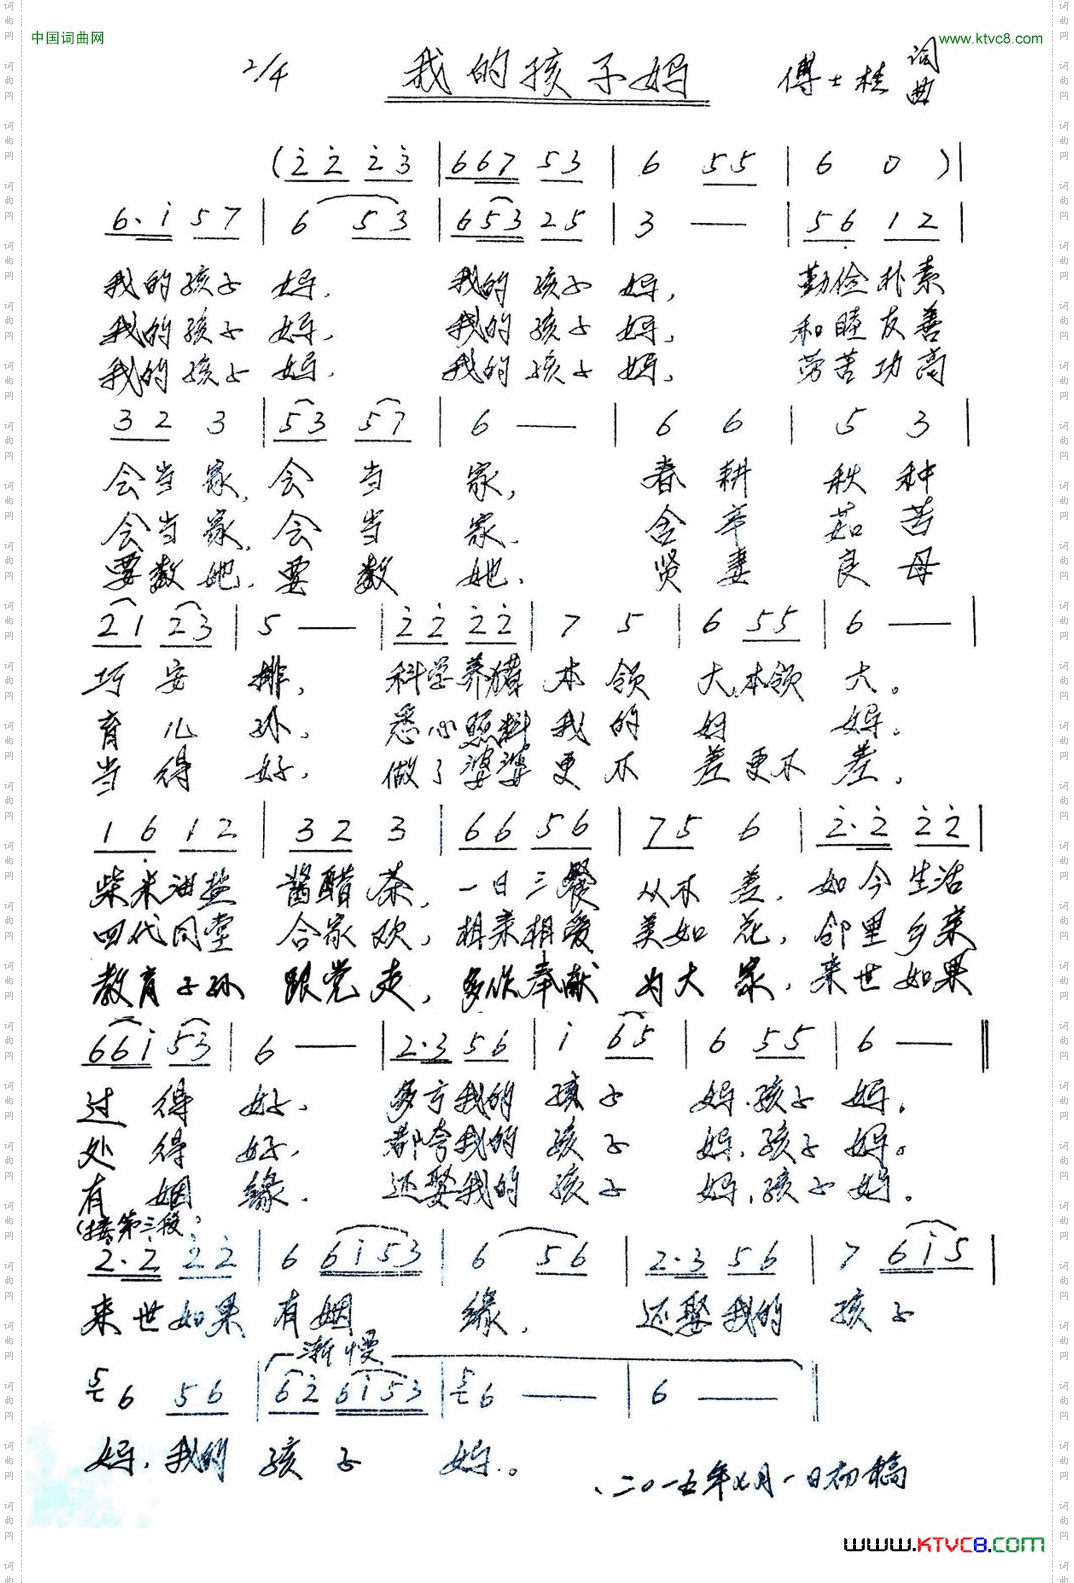 中国词曲网 www.ktvc8.com
2/4 我的孩子妈 傅士桂 词曲
(2̇ 2̇ 2̇ 3̇ | 6 6 7 5 3 | 6 5 5 | 6 0 ) |
6. i 5 7 | 6 5 3 | 6 5 3 2 5 | 3 — | 5 6 1 2 |
我的孩子 妈, 我的 孩子 妈, 勤俭朴素
我的孩子 妈, 我的 孩子 妈, 和睦友善
我的孩子 妈, 我的 孩子 妈, 劳苦功高
3 2 3 | 5 3 5 7 | 6 — | 6 6 | 5 3 |
会当家, 会 当 家, 春 耕 秋 种
会当家, 会 当 家, 含 辛 茹 苦
要数她, 要 数 她, 贤 妻 良 母
2 1 2 3 | 5 — | 2̇ 2̇ 2̇ 2̇ | 7 5 | 6 5 5 | 6 — |
巧 安 排, 科学养猪 本 领 大,本领 大。
育 儿 孙, 悉心照料 我 的 妈 妈。
当 得 好, 做了婆婆 更 不 差更不 差。
1 6 1 2 | 3 2 3 | 6 6 5 6 | 7 5 6 | 2̇. 2̇ 2̇ 2̇ |
柴米油盐 酱醋 茶, 一日三餐 从不 差, 如今生活
四代同堂 合家 欢, 相亲相爱 美如 花, 邻里乡亲
教育子孙 跟党 走, 多作奉献 为大 家, 来世如果
6 6 i 5 3 | 6 — | 2. 3 5 6 | i 6 5 | 6 5 5 | 6 — ‖
过 得 好, 多亏我的 孩 子 妈,孩子 妈。
处 得 好, 都夸我的 孩 子 妈,孩子 妈。
有 姻 缘, 还娶我的 孩 子 妈,孩子 妈。
(接第三段)
2̇. 2̇ 2̇ 2̇ | 6 6 i 5 3 | 6 5 6 | 2. 3 5 6 | 7 6 i 5 |
来世如果 有姻 缘, 还娶我的 孩 子
渐慢
5 6 5 6 | 6 2̇ 6 i 5 3 | 5 6 — | 6 — ‖
妈,我的 孩 子 妈。
二〇一五年七月一日初稿
www.KTVC8.com